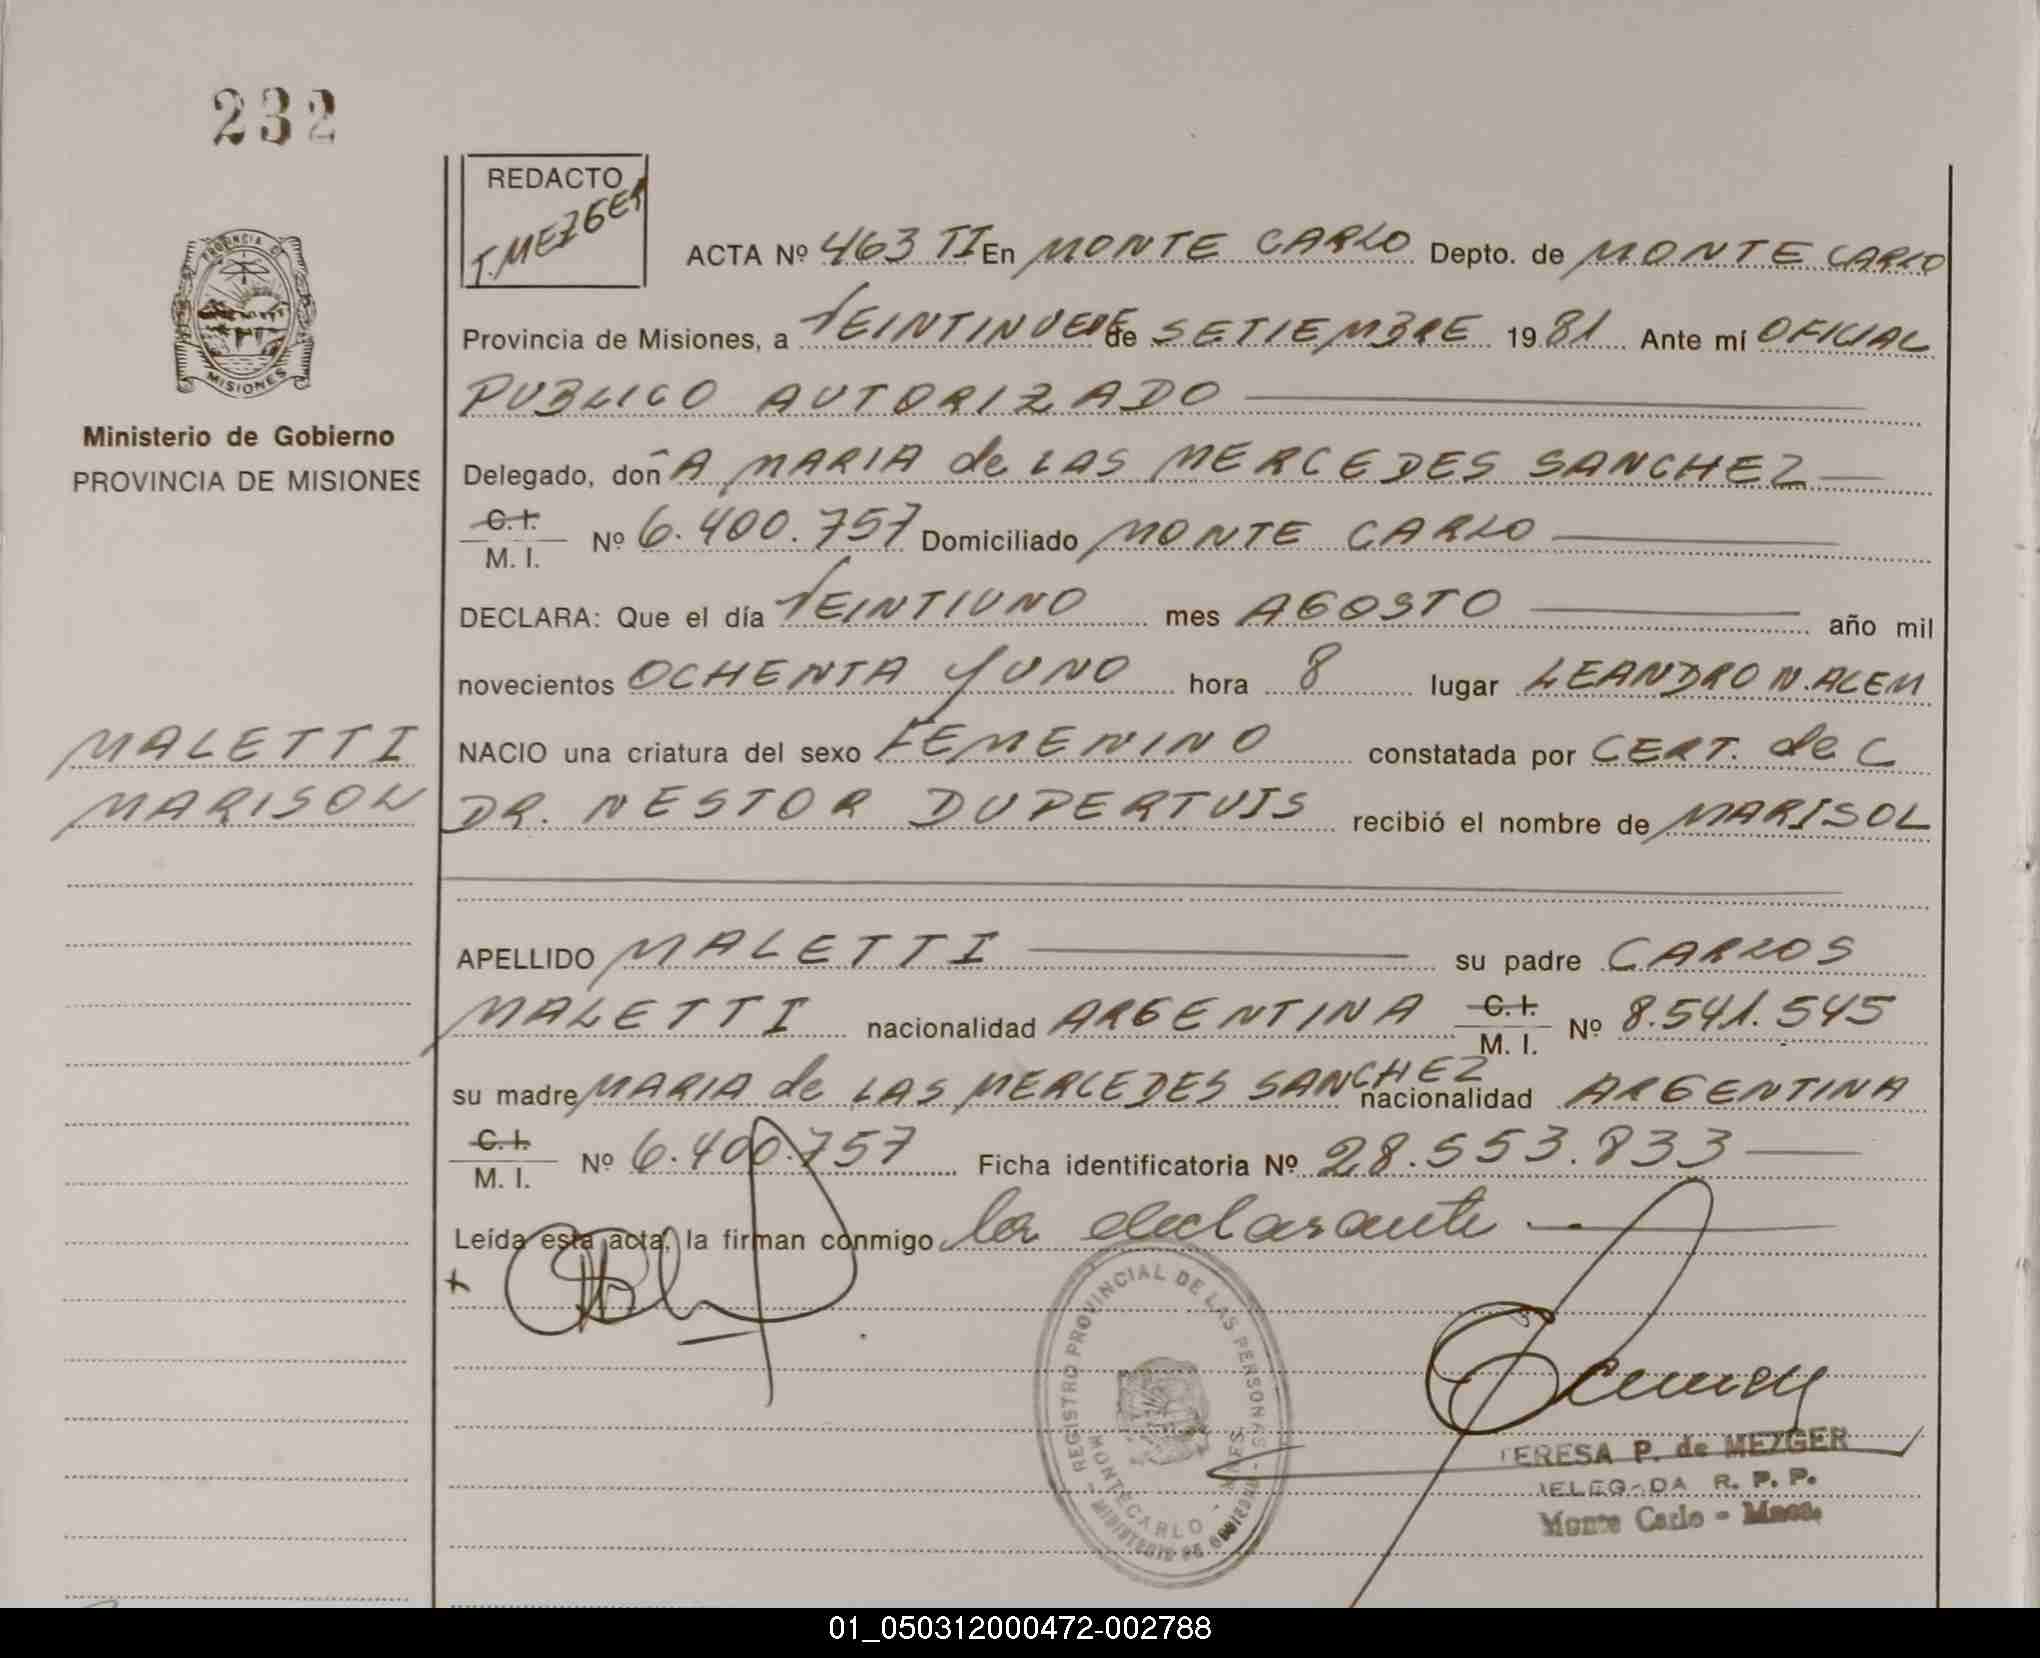 232
REDACTO
T. MEZGER
PROVINCIA D
MISIONES
Ministerio de Gobierno
PROVINCIA DE MISIONES
ACTA Nº 463 TI En MONTE CARLO Depto. de MONTE CARLO
Provincia de Misiones, a VEINTINUEVE de SETIEMBRE 1981 Ante mí OFICIAL
PUBLICO AUTORIZADO
Delegado, doñA MARIA de LAS MERCEDES SANCHEZ
C. I.
M. I. Nº 6.400.757 Domiciliado MONTE CARLO
DECLARA: Que el día VEINTIUNO mes AGOSTO año mil
novecientos OCHENTA Y UNO hora 8 lugar LEANDRO N. ALEM
MALETTI
MARISOL
NACIO una criatura del sexo FEMENINO constatada por CERT. de C
DR. NESTOR DUPERTUIS recibió el nombre de MARISOL
APELLIDO MALETTI su padre CARLOS
MALETTI nacionalidad ARGENTINA C. I. M. I. Nº 8.541.545
su madre MARIA de LAS MERCEDES SANCHEZ nacionalidad ARGENTINA
C. I.
M. I. Nº 6.400.757 Ficha identificatoria Nº 28.553.833
Leída esta acta, la firman conmigo la declarante
REGISTRO PROVINCIAL DE LAS PERSONAS
MONTECARLO - MNES.
MINISTERIO DE GOBIERNO
TERESA P. de MEZGER
DELEGADA R. P. P.
Monte Carlo - Mnes.
01_050312000472-002788